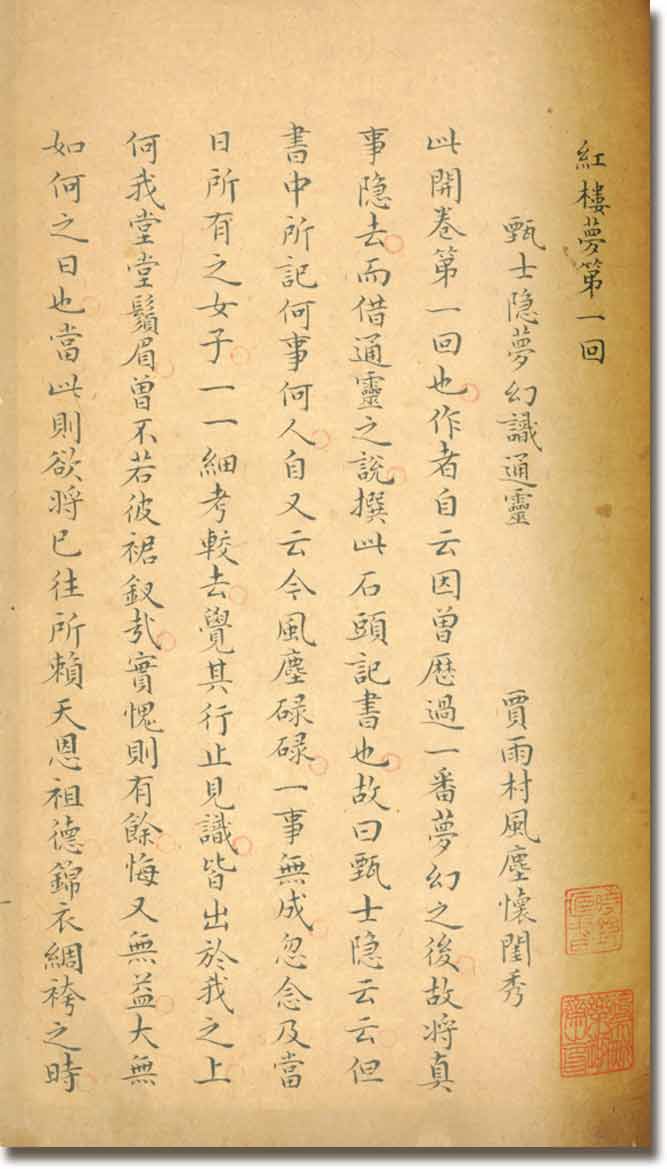 紅樓夢第一回
甄士隐夢幻識通靈 賈雨村風塵懷閨秀
此開卷第一回也作者自云因曾歷過一番夢幻之後故將真
事隐去而借通靈之說撰此石頭記書也故曰甄士隐云云但
書中所記何事何人自又云今風塵碌碌一事無成忽念及當
日所有之女子一一細考較去覺其行止見識皆出於我之上
何我堂堂鬚眉曾不若彼裙釵哉實愧則有餘悔又無益大無
如何之日也當此則欲將已往所賴天恩祖德錦衣綢袴之時